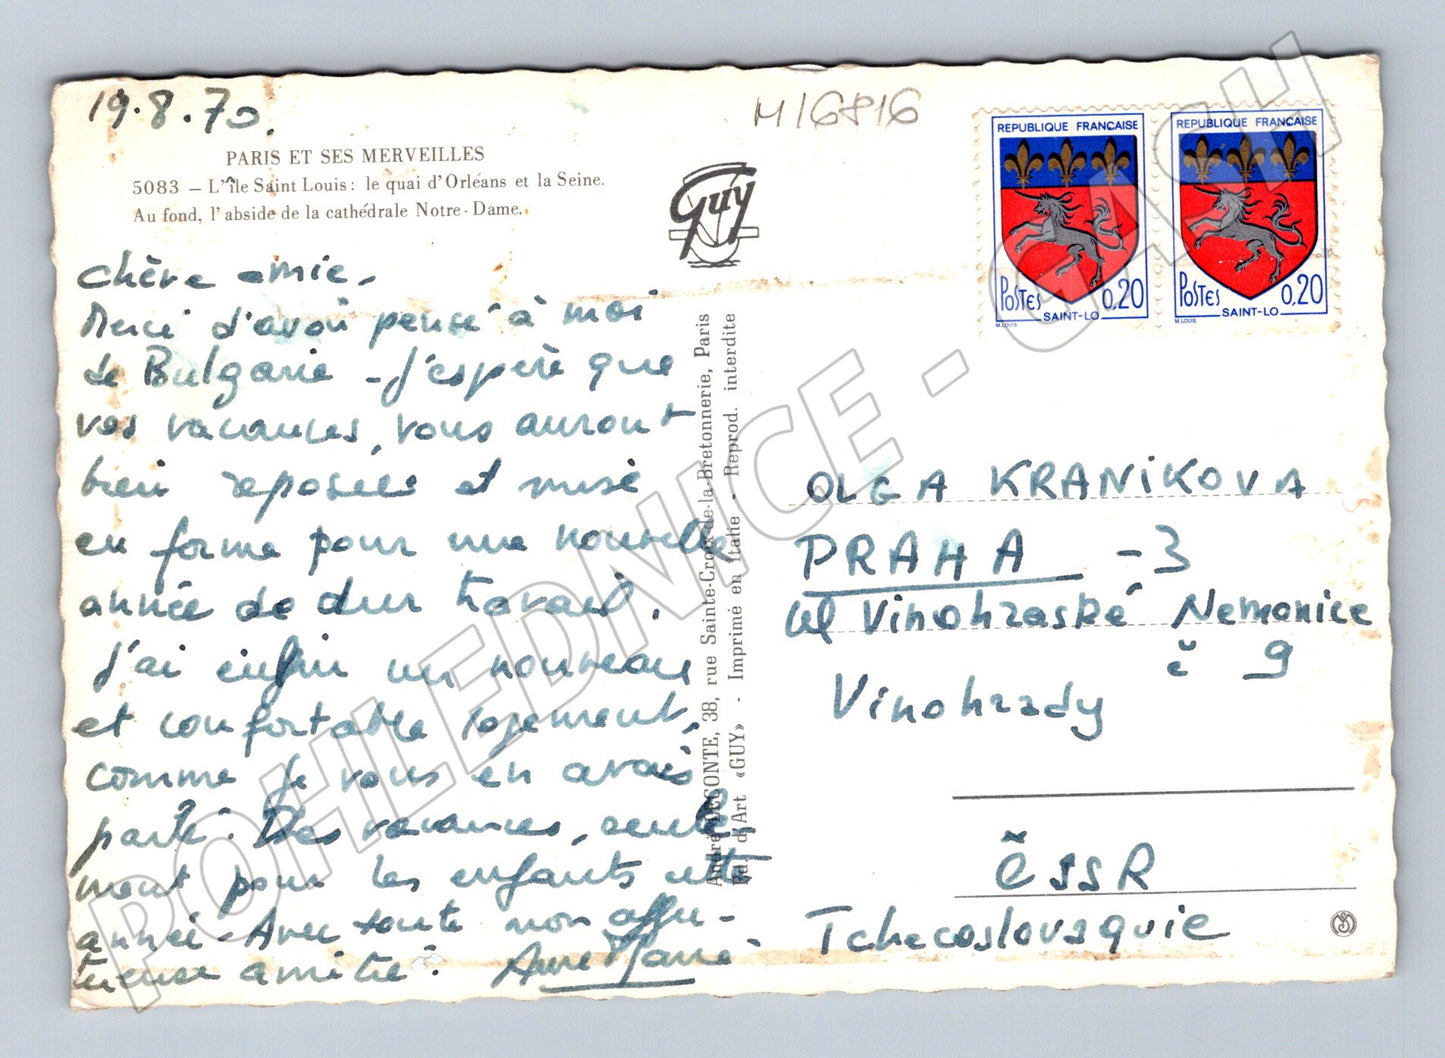 19.8.70.
M16816
PARIS ET SES MERVEILLES
5083 – L'île Saint Louis: le quai d'Orléans et la Seine.
Au fond, l'abside de la cathédrale Notre-Dame.
Guy
REPUBLIQUE FRANÇAISE
POSTES 0,20
SAINT-LO
M.LOUIS
REPUBLIQUE FRANÇAISE
POSTES 0,20
SAINT-LO
M.LOUIS
Chère amie.
Merci d'avoir pensé à moi
de Bulgarie – J'espère que
vos vacances, vous auront
bien reposées et mise
en forme pour une nouvelle
année de dur travail.
J'ai enfin un nouveau
et confortable logement,
comme je vous en avais
parlé. Des vacances, seule-
ment pour les enfants cette
année – Avec toute mon affec-
tueuse amitié. Anne Marie
André LECONTE, 38, rue Sainte-Croix-de-la-Bretonnerie, Paris
Ed. d'Art «GUY» - Imprimé en Italie - Reprod. interdite
OLGA KRANIKOVA
PRAHA – 3
ul Vinohraské Nemonice
č 9
Vinohrady
ČSSR
Tchecoslovaquie
POHLEDNICE - CASH